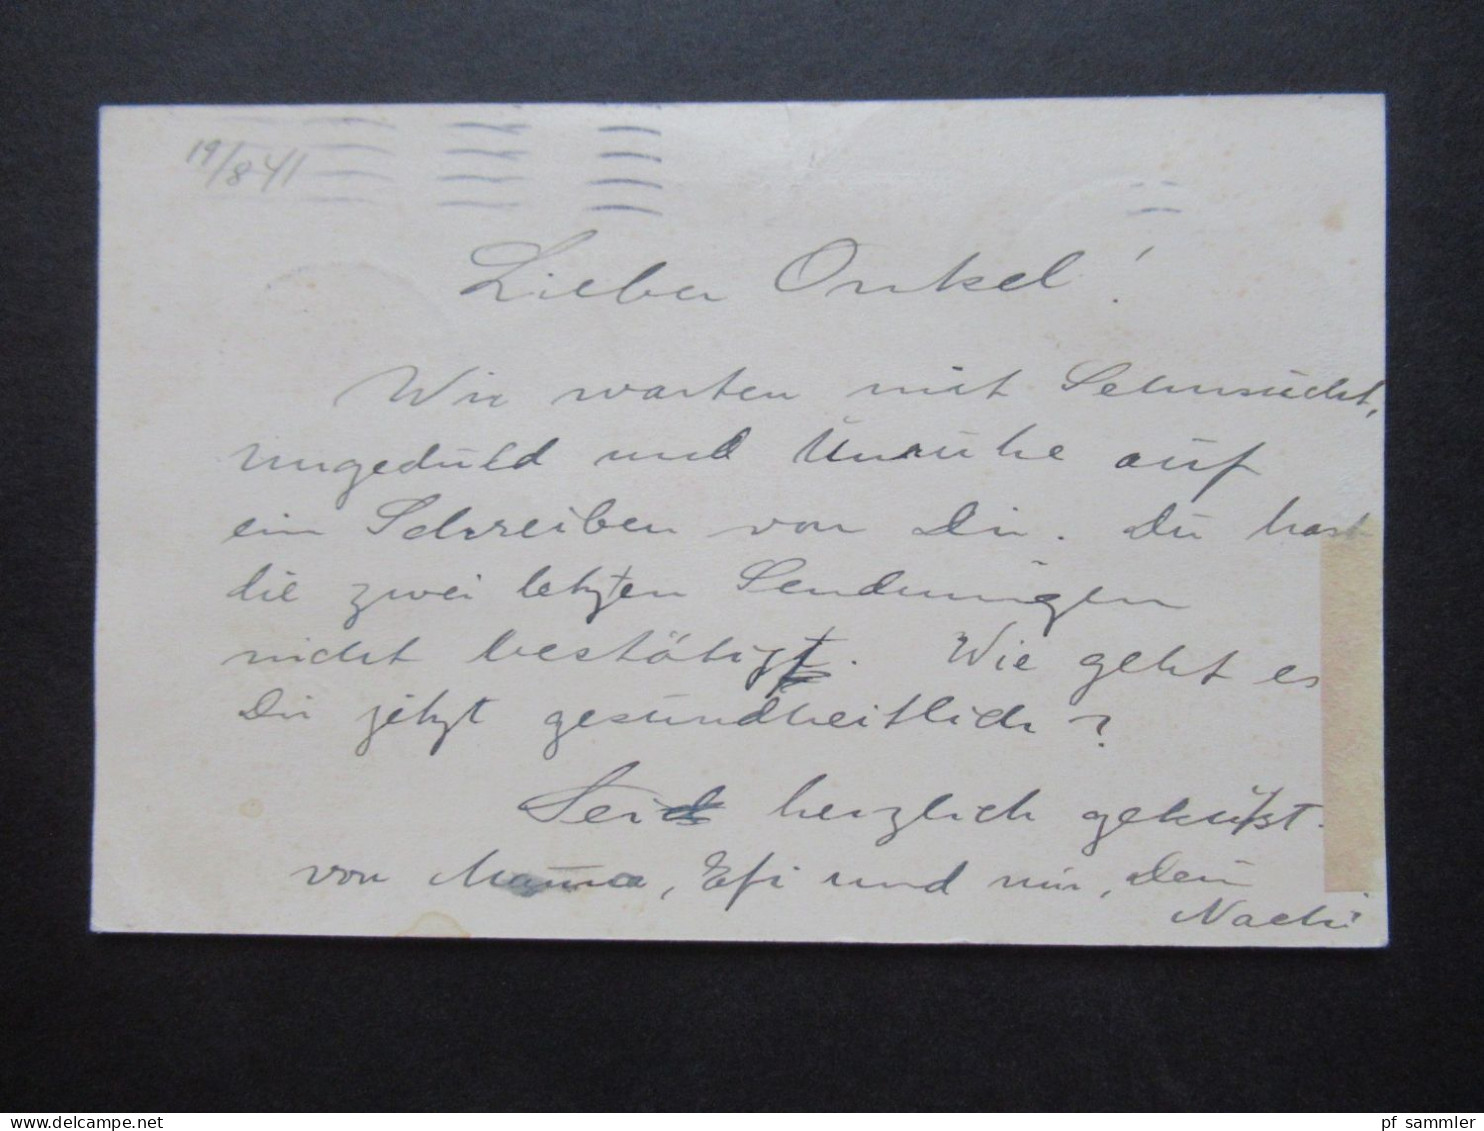 19/8 41
Lieber Onkel!
Wir warten mit Sehnsucht,
Ungeduld und Unruhe auf
ein Schreiben von Dir. Du hast
die zwei letzten Sendungen
nicht bestätigt. Wie geht es
Dir jetzt gesundheitlich?
Seid herzlich geküßt
von Mama, Efi und mir, Dein
delcampe.net
pf_sammler